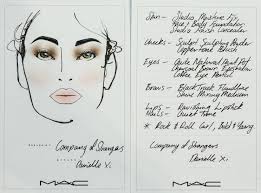 Company of Strangers
Danielle Xi.
MAC
Skin - Studio Moisture Fix,
Face & Body Foundation
Studio Finish Concealer
Cheeks - Sculpt Sculpting Powder
Eyes - Quite Natural Paint Pot
Charcoal Brown Eyeshadow
Coffee Eye Pencil
Brows - Black Track Fluidline
Lips - Ravishing Lipstick
Nails - Quiet Time
* Rock & Roll Girl, Bold & Young
Company of Strangers
Danielle Xi
MAC